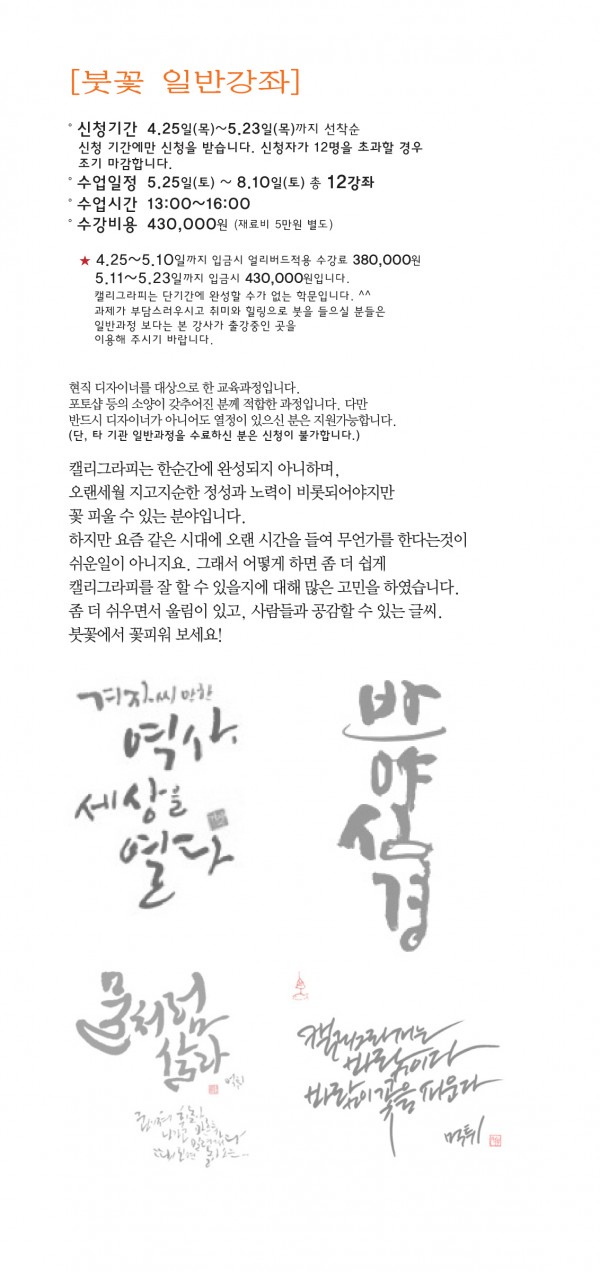 [붓꽃 일반강좌]
° 신청기간 4.25일(목)~5.23일(목)까지 선착순
신청 기간에만 신청을 받습니다. 신청자가 12명을 초과할 경우
조기 마감합니다.
° 수업일정 5.25일(토) ~ 8.10일(토) 총 12강좌
° 수업시간 13:00~16:00
° 수강비용 430,000원 (재료비 5만원 별도)
★ 4.25~5.10일까지 입금시 얼리버드적용 수강료 380,000원
5.11~5.23일까지 입금시 430,000원입니다.
캘리그라피는 단기간에 완성할 수가 없는 학문입니다. ^^
과제가 부담스러우시고 취미와 힐링으로 붓을 들으실 분들은
일반과정 보다는 본 강사가 출강중인 곳을
이용해 주시기 바랍니다.
현직 디자이너를 대상으로 한 교육과정입니다.
포토샵 등의 소양이 갖추어진 분께 적합한 과정입니다. 다만
반드시 디자이너가 아니어도 열정이 있으신 분은 지원가능합니다.
(단, 타 기관 일반과정을 수료하신 분은 신청이 불가합니다.)
캘리그라피는 한순간에 완성되지 아니하며,
오랜세월 지고지순한 정성과 노력이 비롯되어야지만
꽃 피울 수 있는 분야입니다.
하지만 요즘 같은 시대에 오랜 시간을 들여 무언가를 한다는것이
쉬운일이 아니지요. 그래서 어떻게 하면 좀 더 쉽게
캘리그라피를 잘 할 수 있을지에 대해 많은 고민을 하였습니다.
좀 더 쉬우면서 울림이 있고, 사람들과 공감할 수 있는 글씨.
붓꽃에서 꽃피워 보세요!
겨자씨만한
역사,
세상을
열다
반
야
심
경
물처럼
살라
캘리그라피는
바람이다
바람이 꽃을 피운다
먹튀